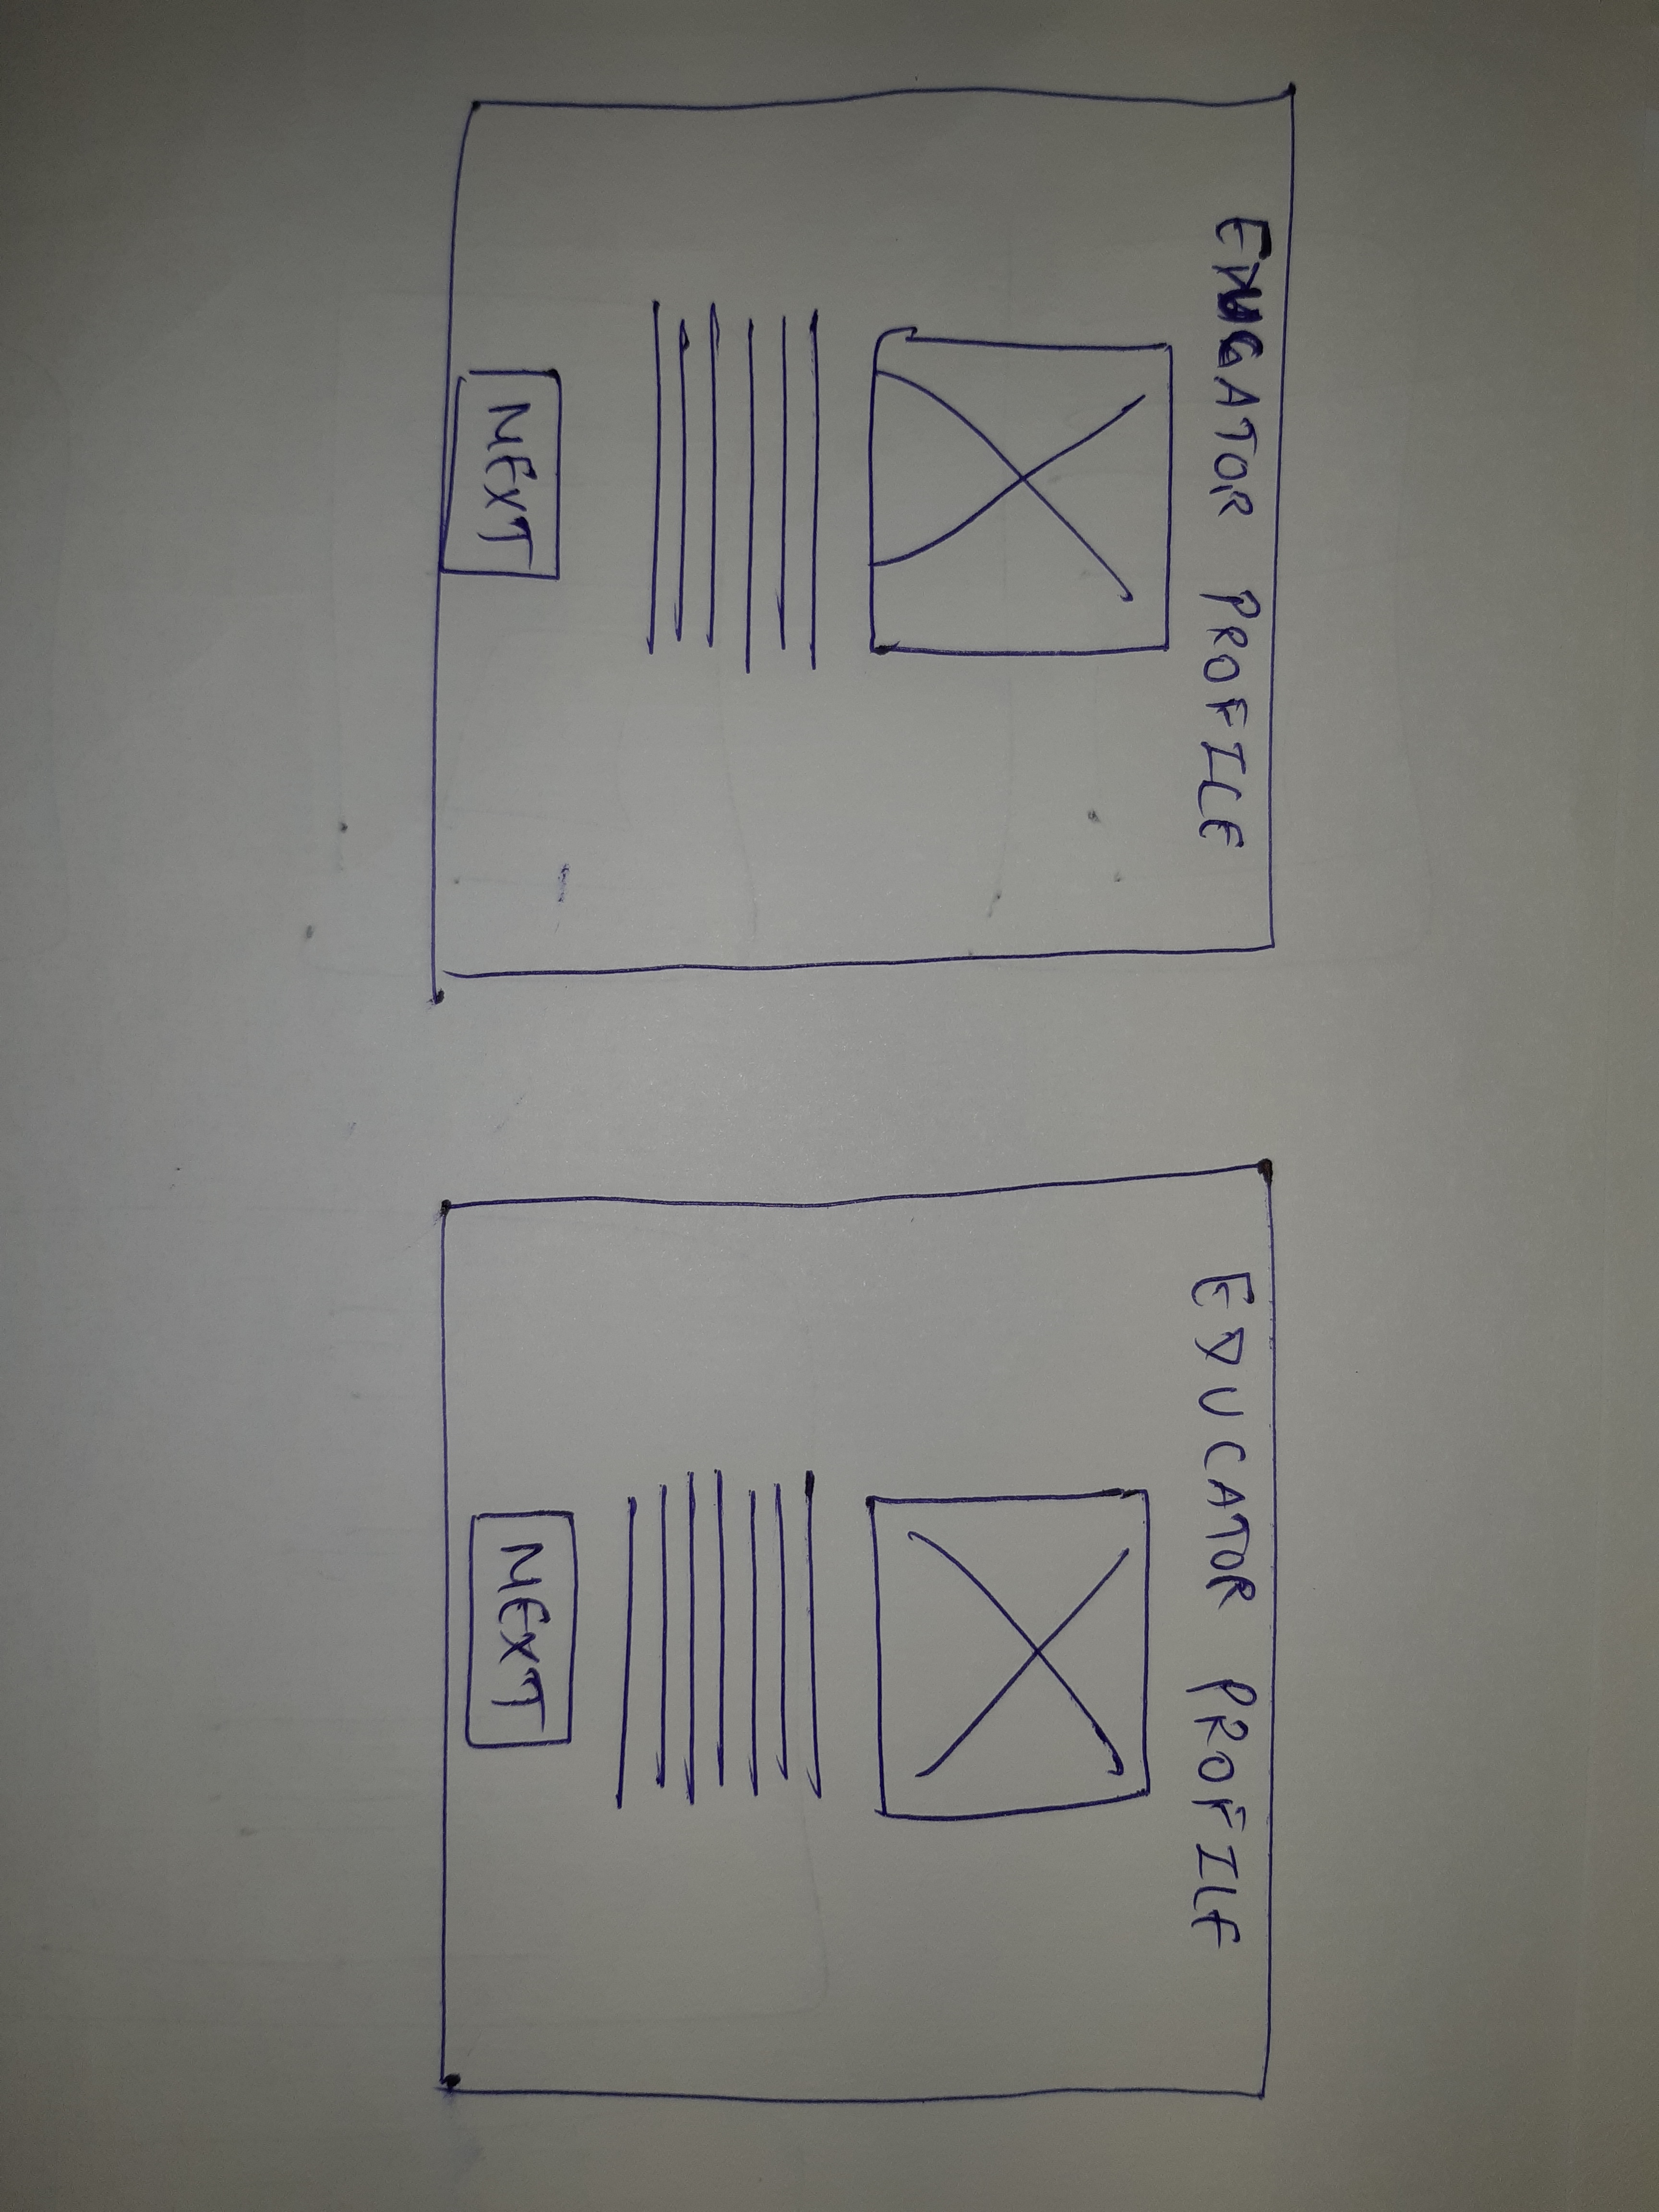 EDUCATOR PROFILE
NEXT
EDUCATOR PROFILE
NEXT